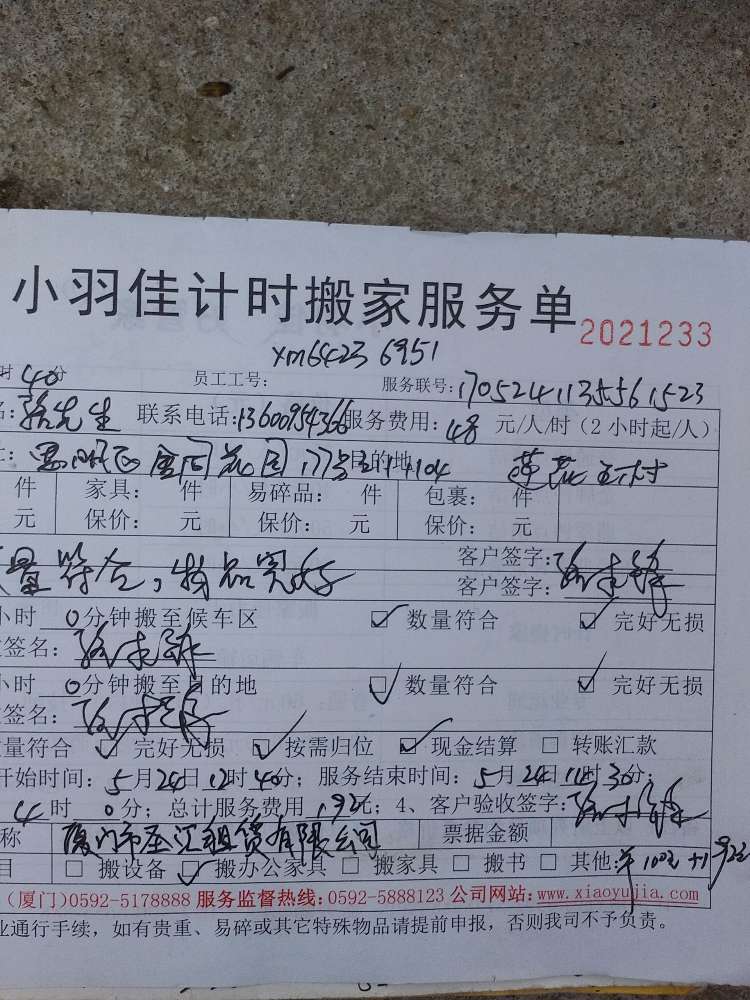 小羽佳计时搬家服务单 2021233
xm6423 6951
时 40分 员工工号: 服务联号: 1705241135561523
名: 先生 联系电话: 13600954366 服务费用: 48 元/人/时（2小时起/人）
花园 177号 目的地 1104 莲花五村
件 家具: 件 易碎品: 件 包裹: 件
元 保价: 元 保价: 元 保价: 元
量符合，物品完好 客户签字:
客户签字:
小时 0分钟搬至候车区 ☑ 数量符合 ☑ 完好无损
签名:
小时 0分钟搬至目的地 ☑ 数量符合 ☑ 完好无损
签名:
量符合 ☑ 完好无损 ☑ 按需归位 ☑ 现金结算 □ 转账汇款
开始时间: 5月24日12时40分；服务结束时间: 5月24日 时30分；
4时 0分；总计服务费用 192元；4、客户验收签字:
称 厦门市圣汇租赁有限公司 票据金额
目 □ 搬设备 ☑ 搬办公家具 □ 搬家具 □ 搬书 □ 其他:
（厦门）0592-5178888 服务监督热线: 0592-5888123 公司网站: www.xiaoyujia.com
业通行手续，如有贵重、易碎或其它特殊物品请提前申报，否则我司不予负责。